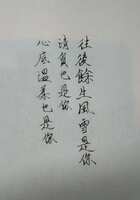 往後餘生風雪是你
清貧也是你
心底溫柔也是你